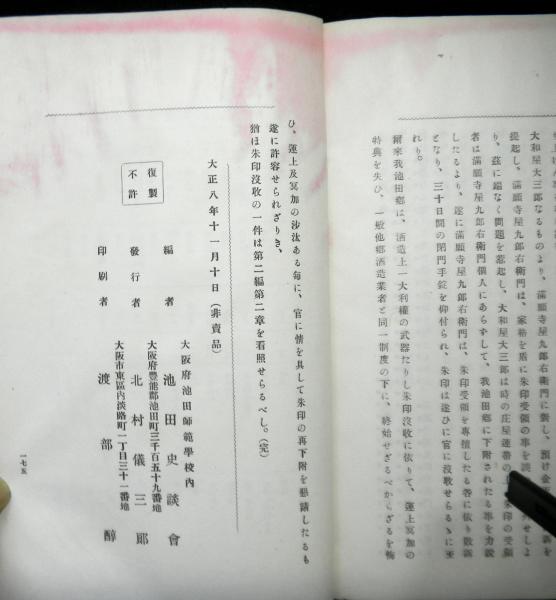 大和屋大三郎なるものより、滿願寺屋九郎右衛門に對し、預け金
提起し、滿願寺屋九郎右衛門は、家格を盾に朱印受領の事を
り、玆に端なく問題を惹起し、大和屋大三郎は時の庄屋連署の
者は滿願寺屋九郎右衛門個人にあらずして、我池田鄕に下附されたる事を力說
したるより、遂に滿願寺屋九郎右衛門は、朱印受領を專擅したる咎に依り數
となり、三十日間の閉門手錠を仰付られ、朱印は遂ひに官に沒收せらるゝに至
れり。
爾來我池田鄕は、酒造上一大利權の武器たりし朱印沒收に依りて、運上冥加の
特典を失ひ、一般他鄕酒造業者と同一制度の下に、終始せざるべからざるを悔
ひ、運上及冥加の沙汰ある每に、官に情を具して朱印の再下附を懇請したるも
遂に許容せられざりき、
猶ほ朱印沒收の一件は第二編第二章を看照せらるべし。(完)
大正八年十一月十日(非賣品)
復製
不許
大阪府池田師範學校內
編者 池田史談會
大阪府豐能郡池田町三千百五十九番地
發行者 北村儀三郎
大阪市東區內淡路町一丁目三十一番地
印刷者 渡部醇
一七五